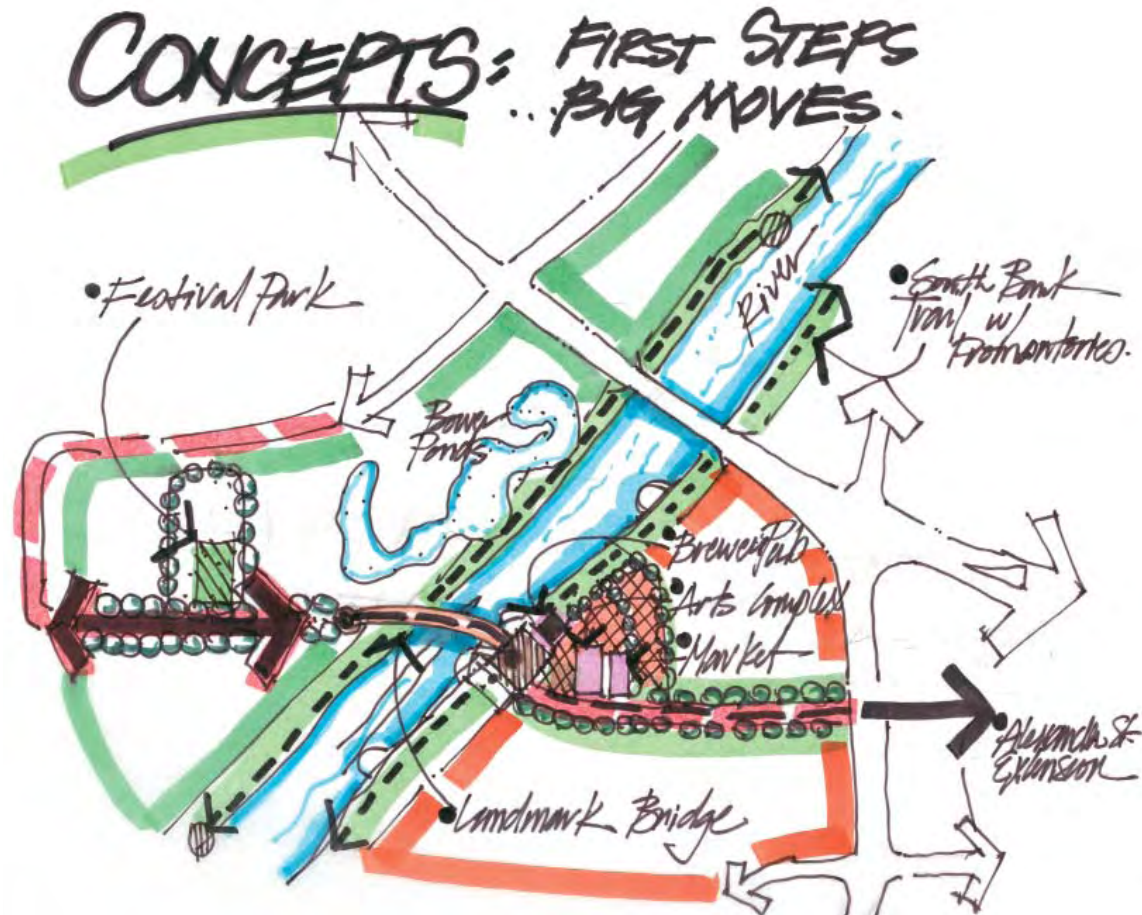 CONCEPTS: FIRST STEPS
... BIG MOVES.
• Festival Park
River
• South Bank
Trail w/
Promontories.
Bower
Ponds
• Brewery Pub
• Arts Complex
• Market
• Alexander St.
Extension
• Landmark Bridge